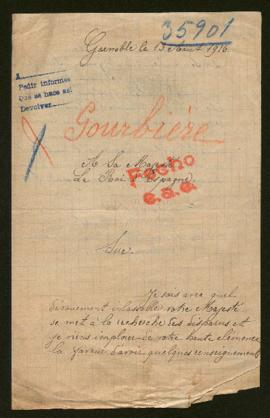 35901
Grenoble le 13 Août 1916
A
Pedir informes
Que se hace así
Devolver
Gourbière
A Sa Majesté
Le Roi d'Espagne
Fecho
Sire
Je sais avec quel
dévouement inlassable votre Majesté
se met à la recherche des disparus et
je viens implorer de votre haute clémence
la faveur d'avoir quelques renseignements